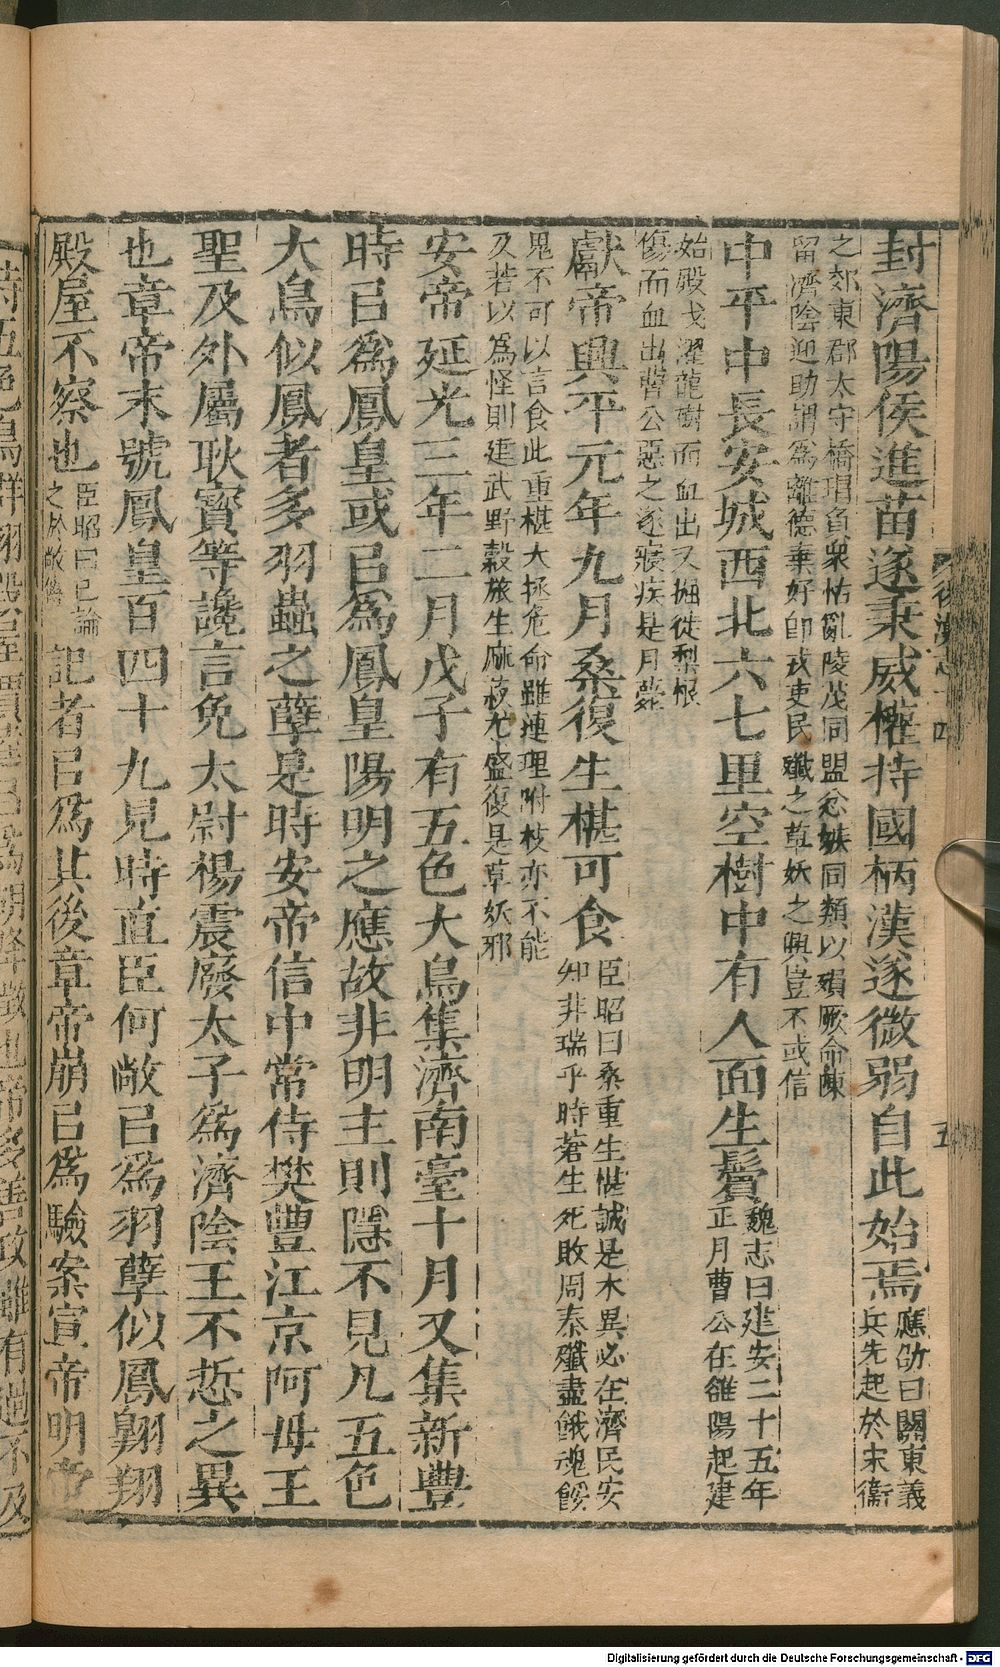 封濟陽侯進苗遂秉威權持國柄漢遂微弱自此始焉應劭曰關東義
兵先起於宋衞
之郊東郡太守橋瑁負衆怙亂陵茂同盟忿嫉同類以殞厥命陳
留濟陰迎助謂為離德棄好即戎吏民殲之草妖之興豈不或信
中平中長安城西北六七里空樹中有人面生鬢魏志曰建安二十五年
正月曹公在雒陽起建
始殿伐濯龍樹而血出又掘徙梨根
傷而血出曹公惡之遂寢疾是月薨
獻帝興平元年九月桑復生椹可食臣昭曰桑重生椹誠是木異必在濟民安
知非瑞乎時蒼生死敗周秦殲盡餓魂餒
鬼不可以言食此重椹大拯危命雖連理附枝亦不能
及若以為怪則建武野穀旅生麻菽尤盛復是草妖邪
安帝延光三年二月戊子有五色大鳥集濟南臺十月又集新豐
時㠯為鳳皇或㠯為鳳皇陽明之應故非明主則隱不見凡五色
大鳥似鳳者多羽蟲之孽是時安帝信中常侍樊豐江京阿母王
聖及外屬耿寳等讒言免太尉楊震廢太子為濟陰王不悊之異
也章帝末號鳳皇百四十九見時直臣何敞㠯為羽孽似鳳翺翔
殿屋不察也臣昭曰已論
之於敞傳記者㠯為其後章帝崩㠯為驗案宣帝明帝
五
Digitalisierung gefördert durch die Deutsche Forschungsgemeinschaft - DFG